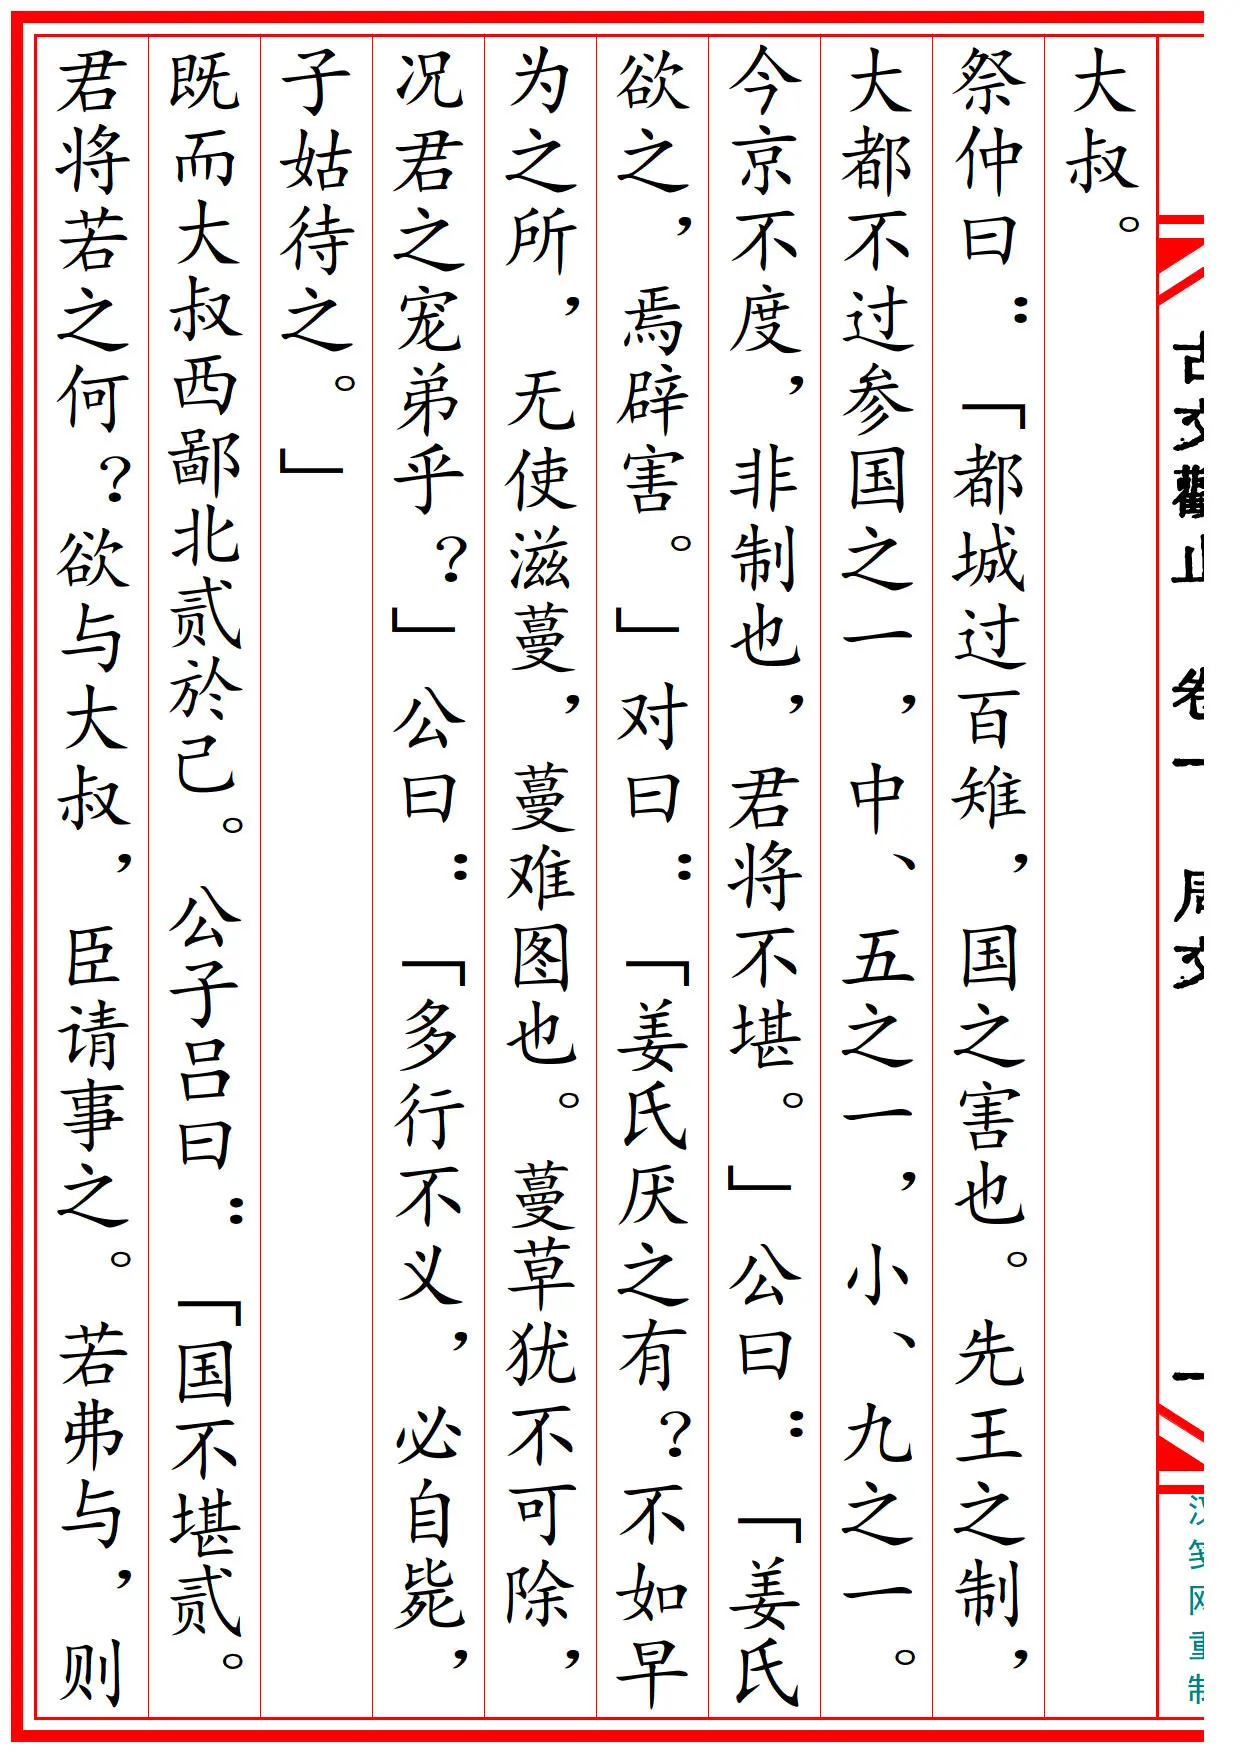 古文觀止 卷一 周文 一
大叔。
祭仲曰：「都城过百雉，国之害也。先王之制，
大都不过参国之一，中、五之一，小、九之一。
今京不度，非制也，君将不堪。」公曰：「姜氏
欲之，焉辟害。」对曰：「姜氏厌之有？不如早
为之所，无使滋蔓，蔓难图也。蔓草犹不可除，
况君之宠弟乎？」公曰：「多行不义，必自毙，
子姑待之。」
既而大叔西鄙北贰於己。公子吕曰：「国不堪贰。
君将若之何？欲与大叔，臣请事之。若弗与，则
汉笺网重制